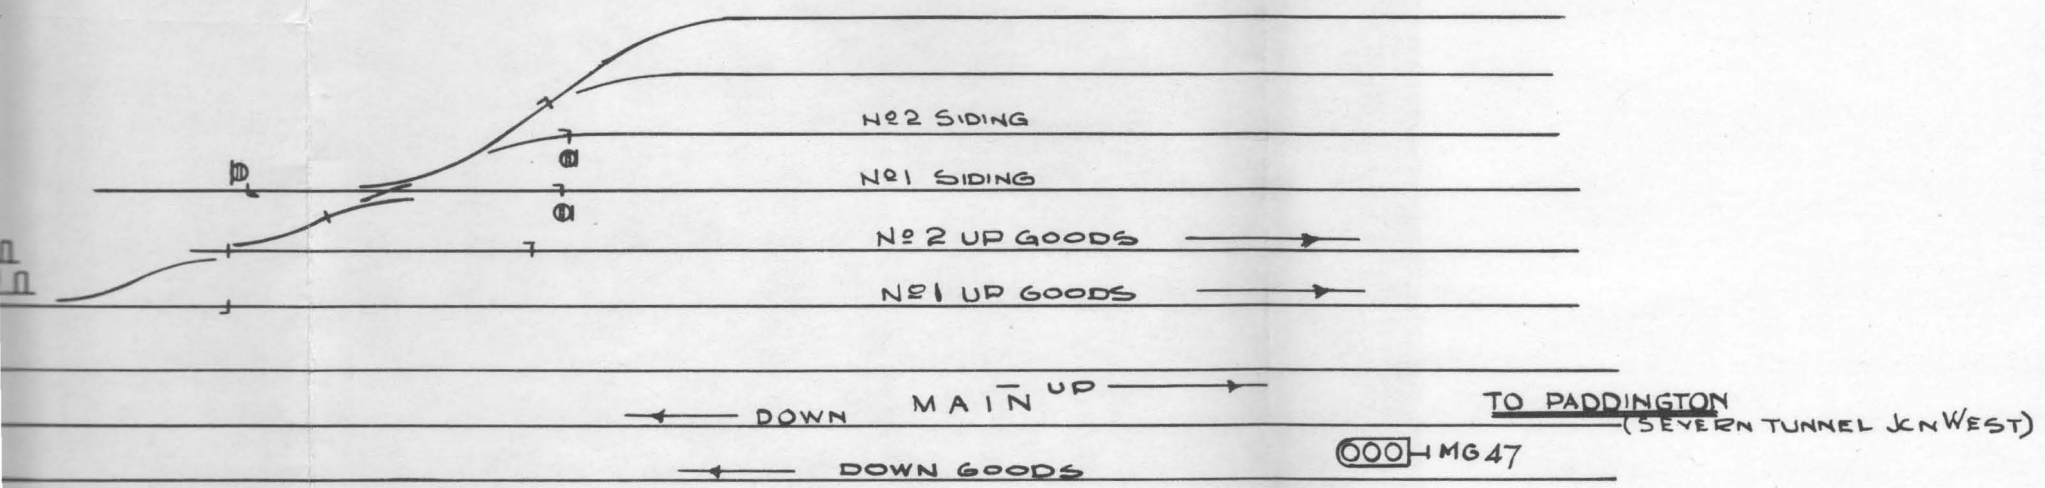 Nº2 SIDING
Nº1 SIDING
Nº 2 UP GOODS
Nº1 UP GOODS
MAIN UP
DOWN
TO PADDINGTON
(SEVERN TUNNEL JCN WEST)
MG47
DOWN GOODS